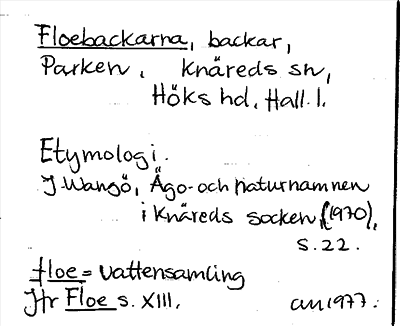 Floebackarna, backar,
Parken, Knäreds sn,
Höks hd. Hall. l.
Etymologi.
J Wangö, Ägo- och naturnamnen
i Knäreds socken, (1970),
s. 22.
floe = vattensamling
Jfr Floe s. XIII.
am 1977.